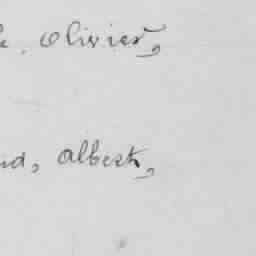 e. Olivier,
nd, Albert,